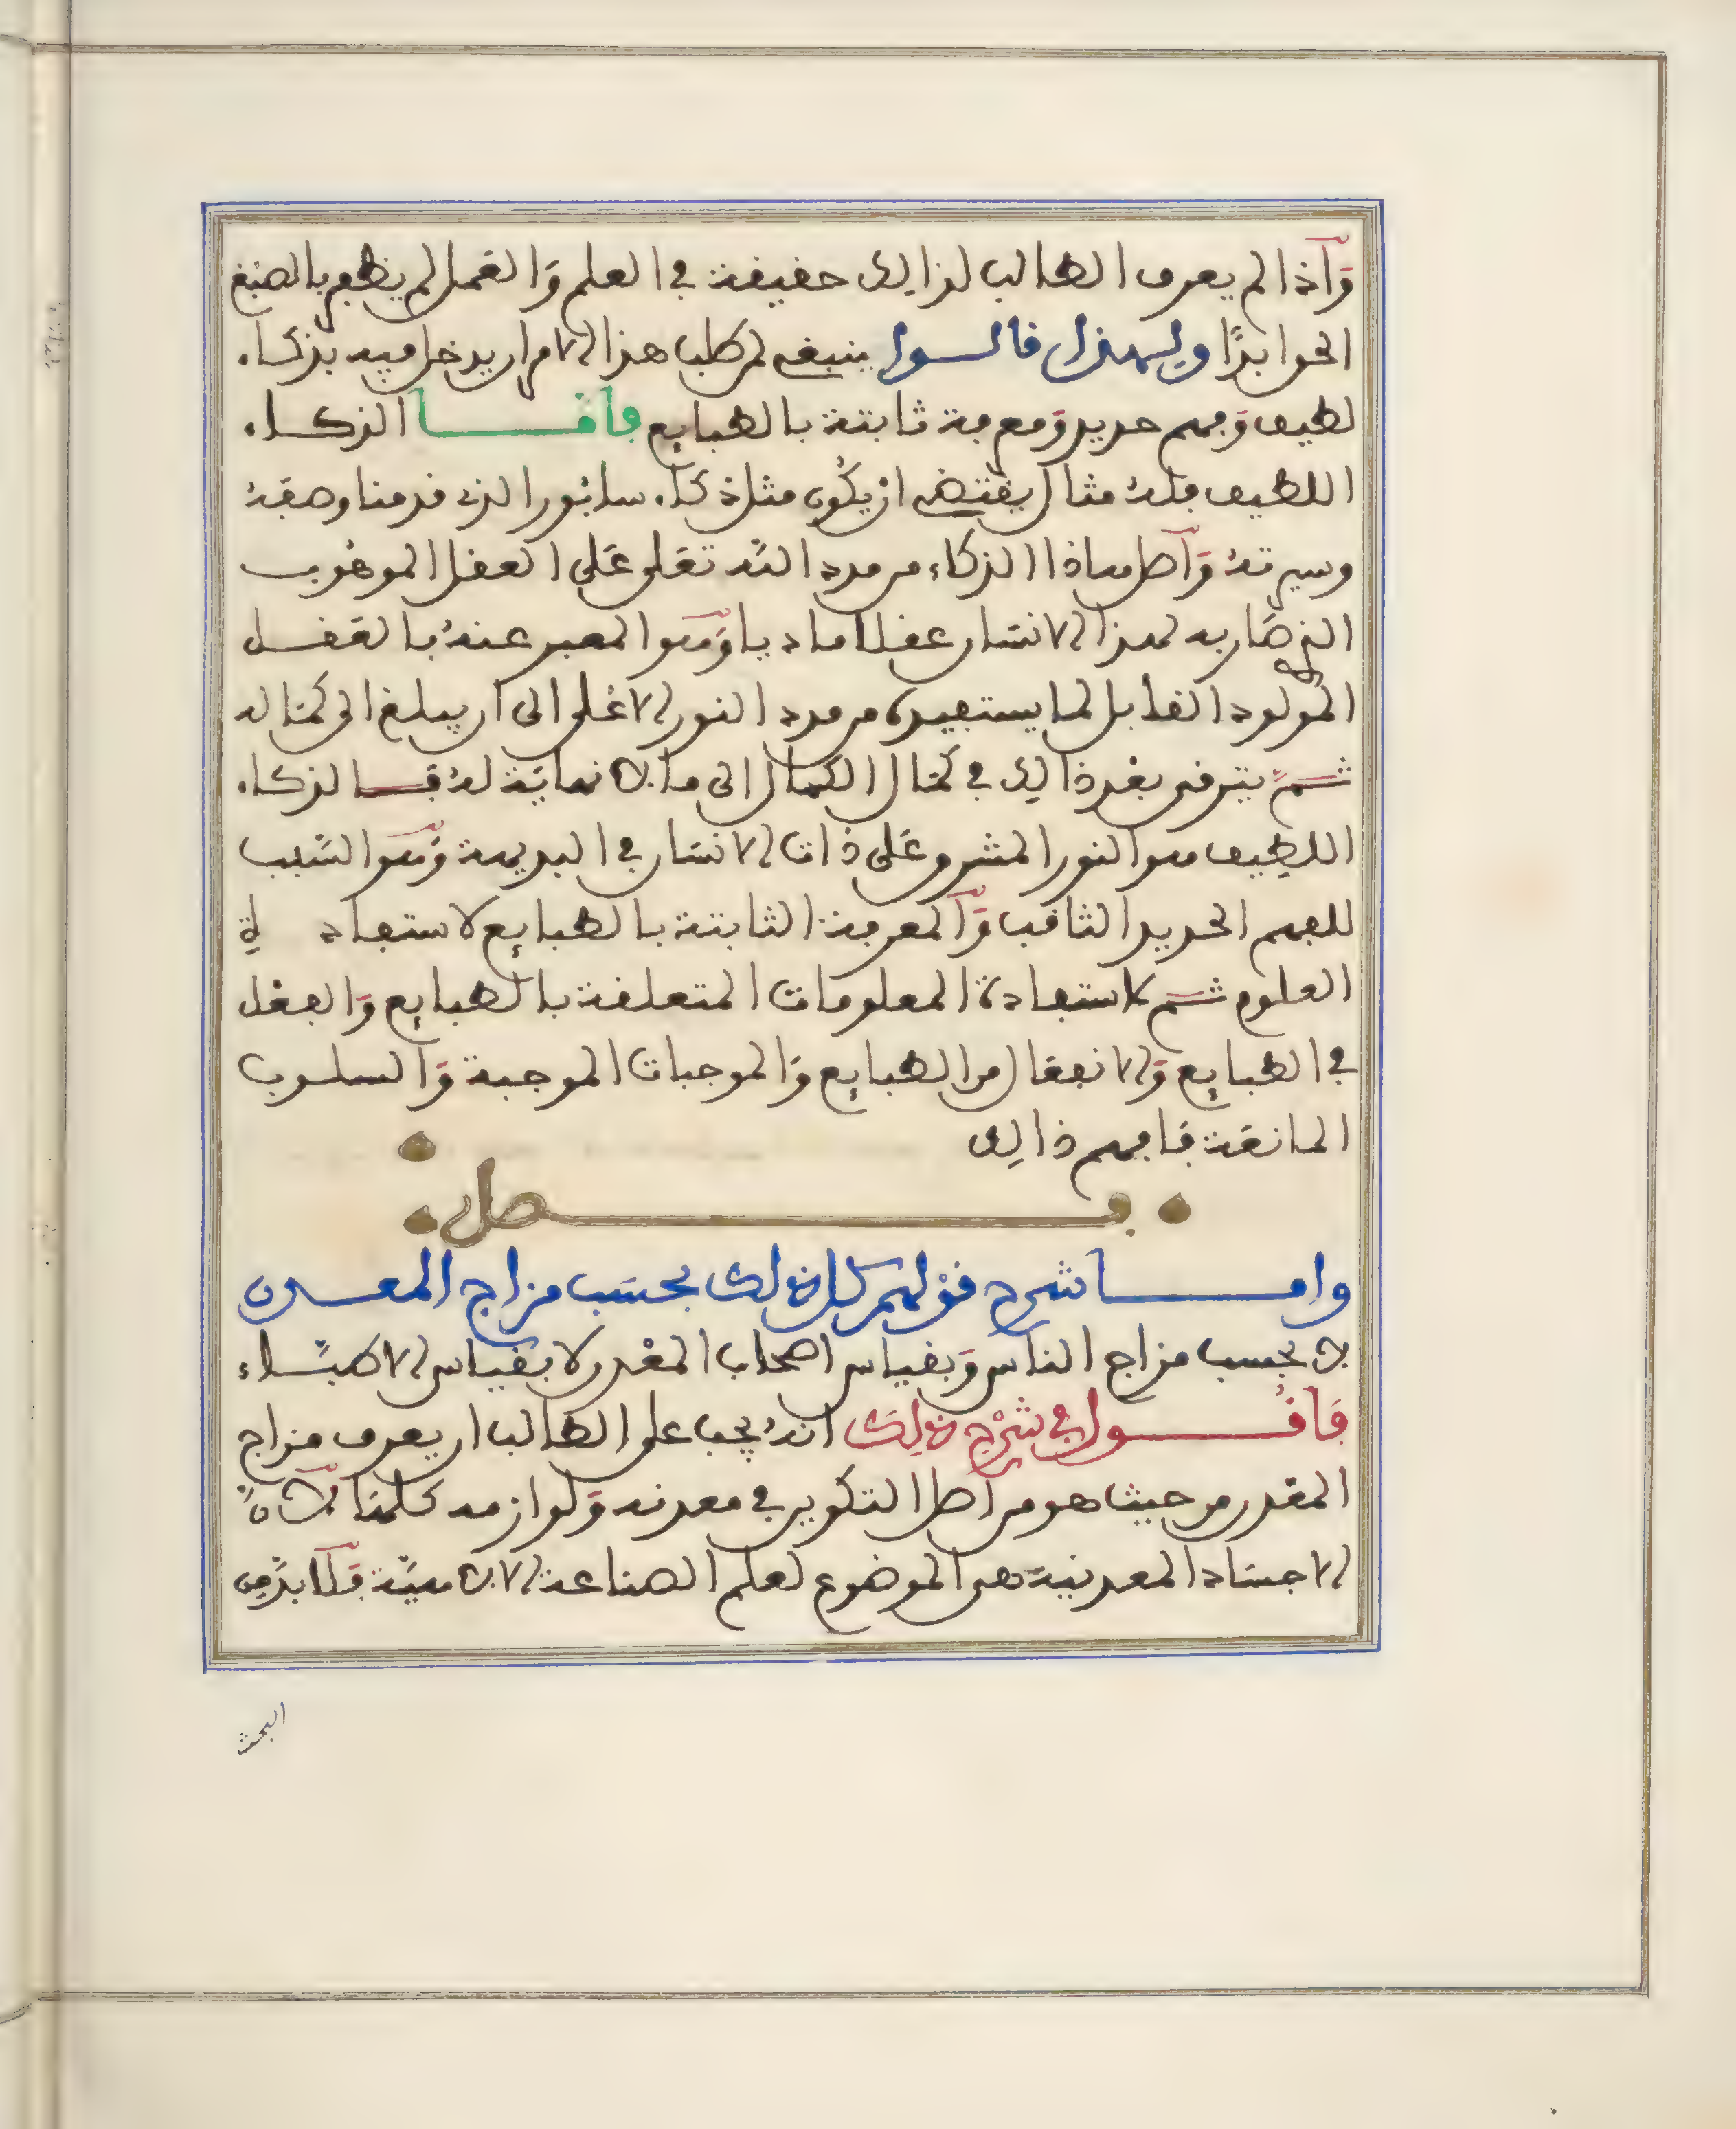 وَاذا لم يعرف الطالب لذالك حقيقة في العلم وَالعَمل لم يظفر بالصَبغ
الحق ابدًا ولهذا قالوا ينبغي لمن طلب هذا الامر ان يدخل فيه بذكاء
لطيف وَفهم حديد وَمعرفة ثابتة بالطبايع فامّا الذكاء
اللطيف فلهُ مثال يقتضي ان يكُون مثل ذكاء سابُور الذي قدمنا وصفهُ
وسيرتهُ وَاصل هاذا الذكاء من مدد الله تعَلى عَلى العقل الموهُوب
الذي صَار به لهذا الانسَان عقلا ماديا وَهو المعبر عنهُ بالعَقل
المَولود القابل لما يستفيدهُ من مدد النور الاعْلى الى ان يبلغ الى كمَاله
ثمّ يترقى بعْد ذالك في كمَال الكمال الى ما لا نهايَة لهُ فالذكاء
اللطِيف هو النور المشرق عَلى ذات الانسَان في البديهة وَهو السَّبب
للفهم الحديد الثاقب وَالمعرفة الثابتة بالطبايع لاستفادة
العلوم ثم لاستفادة المعلومات المتعلقة بالطبايع وَالفعْل
في الطبايع وَالانفعَال من الطبايع وَالموجبات الموجبة وَالسلوب
المانعَة فَافهم ذالك
فصل
وامّا شرح قوْلهم كل ذلك بحسَب مزاج المعدن
لا بحسب مزاج الناس وَبقياس اصحاب المعْدن لا بقياس الاطبَّاء
فَاقُول في شرْح ذلِكَ انهُ يجب على الطالب ان يعرف مزاج
المعْدن من حيث هو من اصل التكوين في معدنه وَلوازمه كلهَا لانَّ
الاجسَاد المعدنيَة هي الموضُوع لعلم الصناعة الالاهيَّة فَلَا بدَّ من
البحث